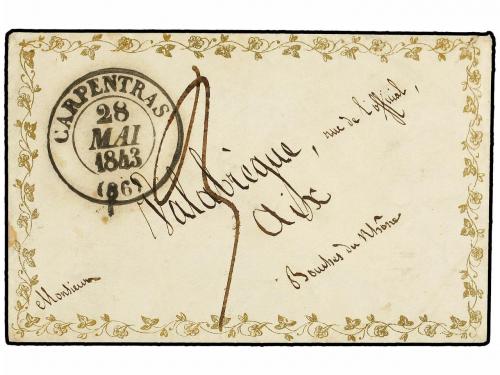 CARPENTRAS
28
MAI
1843
(86)
3
Monsieur
Valabrègue, rue de l'official,
Aix
Bouches du Rhône